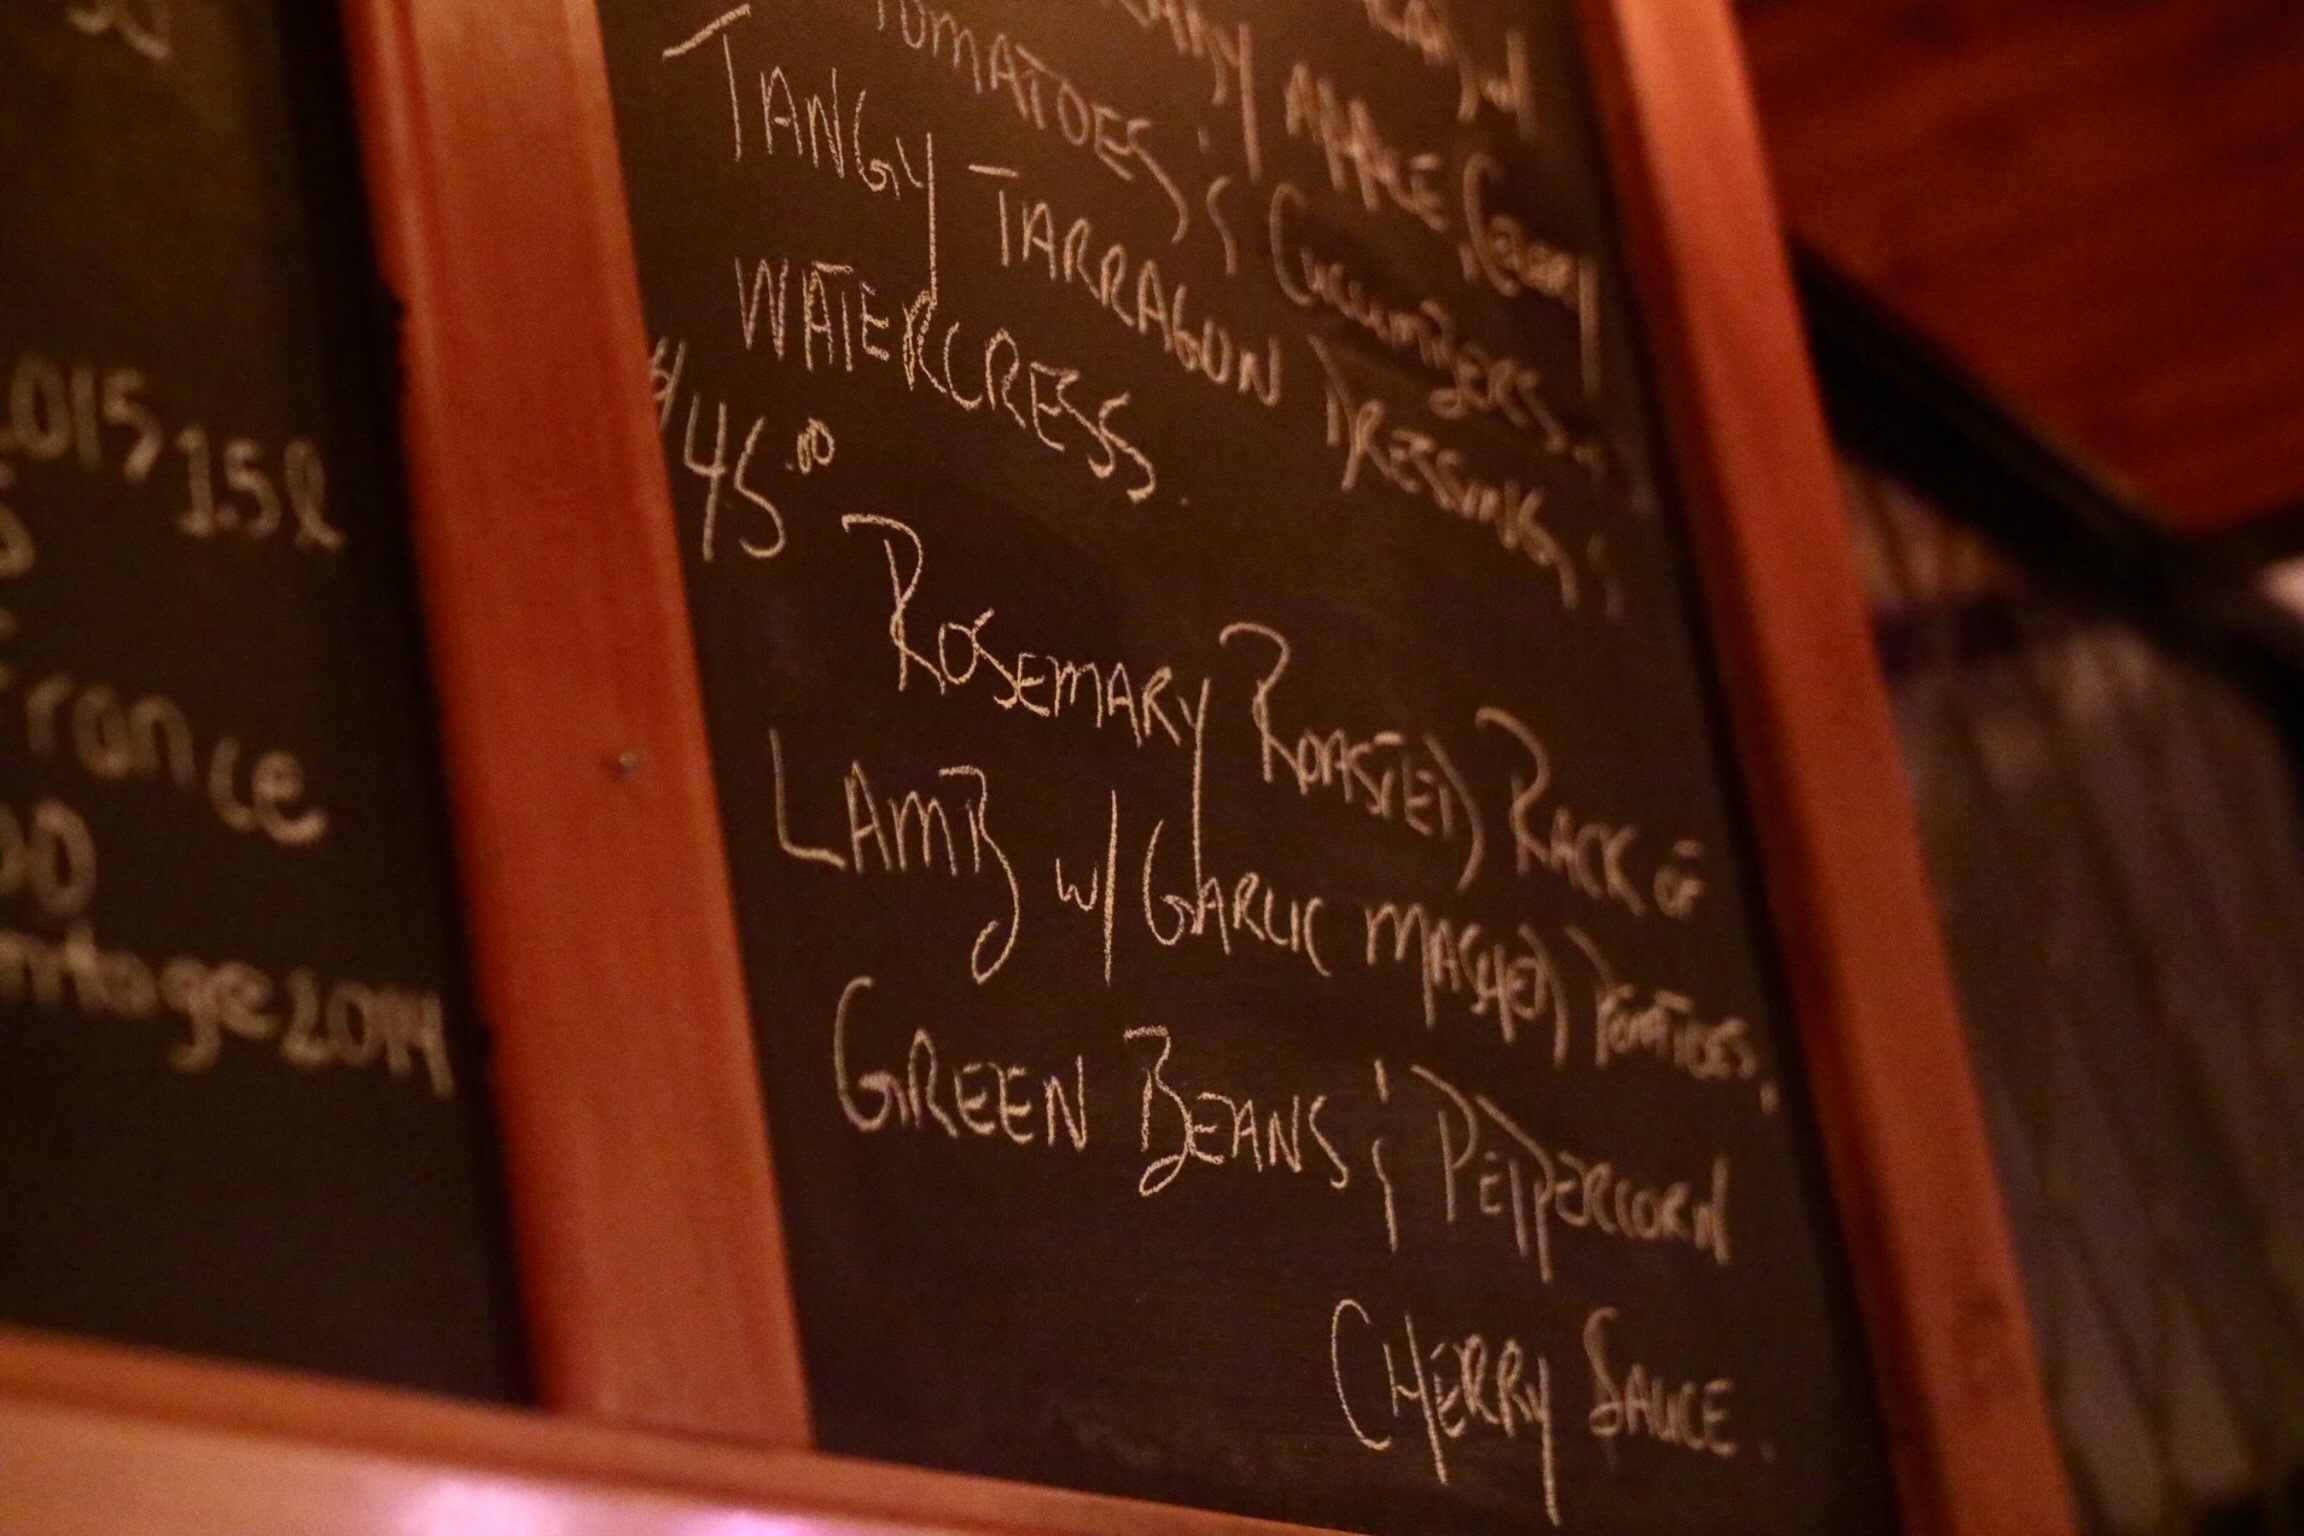 015 1.5l
France
00
ntage 2014
APPLE CELERY
TOMATOES & CUCUMBERS.
TANGY TARRAGON DRESSING &
WATERCRESS.
45.00
ROSEMARY ROASTED RACK OF
LAMB w/ GARLIC MASHED POTATOES,
GREEN BEANS & PEPPERCORN
CHERRY SAUCE.